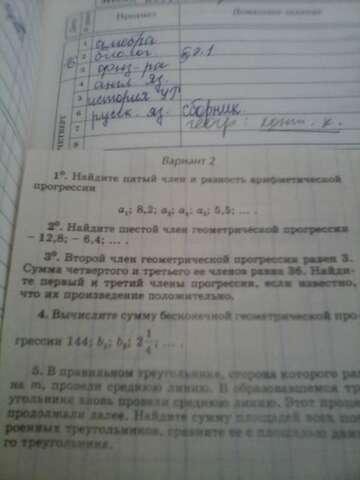 Предмет
Домашнее задание
1 алгебра
2 биолог. §2.1
3 физ-ра
4 англ яз.
5 история
6 русск. яз. сборник.
7 геогр: конт. к.
8
ЧЕТВЕРГ
Вариант 2
1⁰. Найдите пятый член и разность арифметической
прогрессии
a₁; 8,2; a₃; a₄; a₅; 5,5; ... .
2⁰. Найдите шестой член геометрической прогрессии
– 12,8; – 6,4; ... .
3⁰. Второй член геометрической прогрессии равен 3.
Сумма четвертого и третьего ее членов равна 36. Найди-
те первый и третий члены прогрессии, если известно,
что их произведение положительно.
4. Вычислите сумму бесконечной геометрической про-
грессии 144; b₂; b₃; 2 1/4; ... .
5. В правильном треугольнике, сторона которого рав
на m, провели среднюю линию. В образовавшемся тре
угольнике вновь провели среднюю линию. Этот проце
продолжали далее. Найдите сумму площадей всех пост
роенных треугольников, сравните ее с площадью данно
го треугольника.